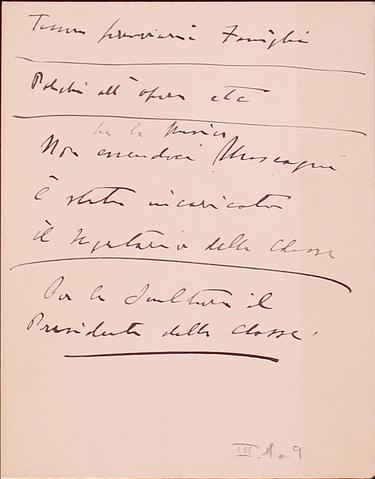 Tessera ferroviaria Famiglia
Palchi all'opera etc
per la Musica
Non essendoci Mascagni
è stato incaricato
il segretario della Classe
Per la Scultura il
Presidente della Classe
III. 1. 9